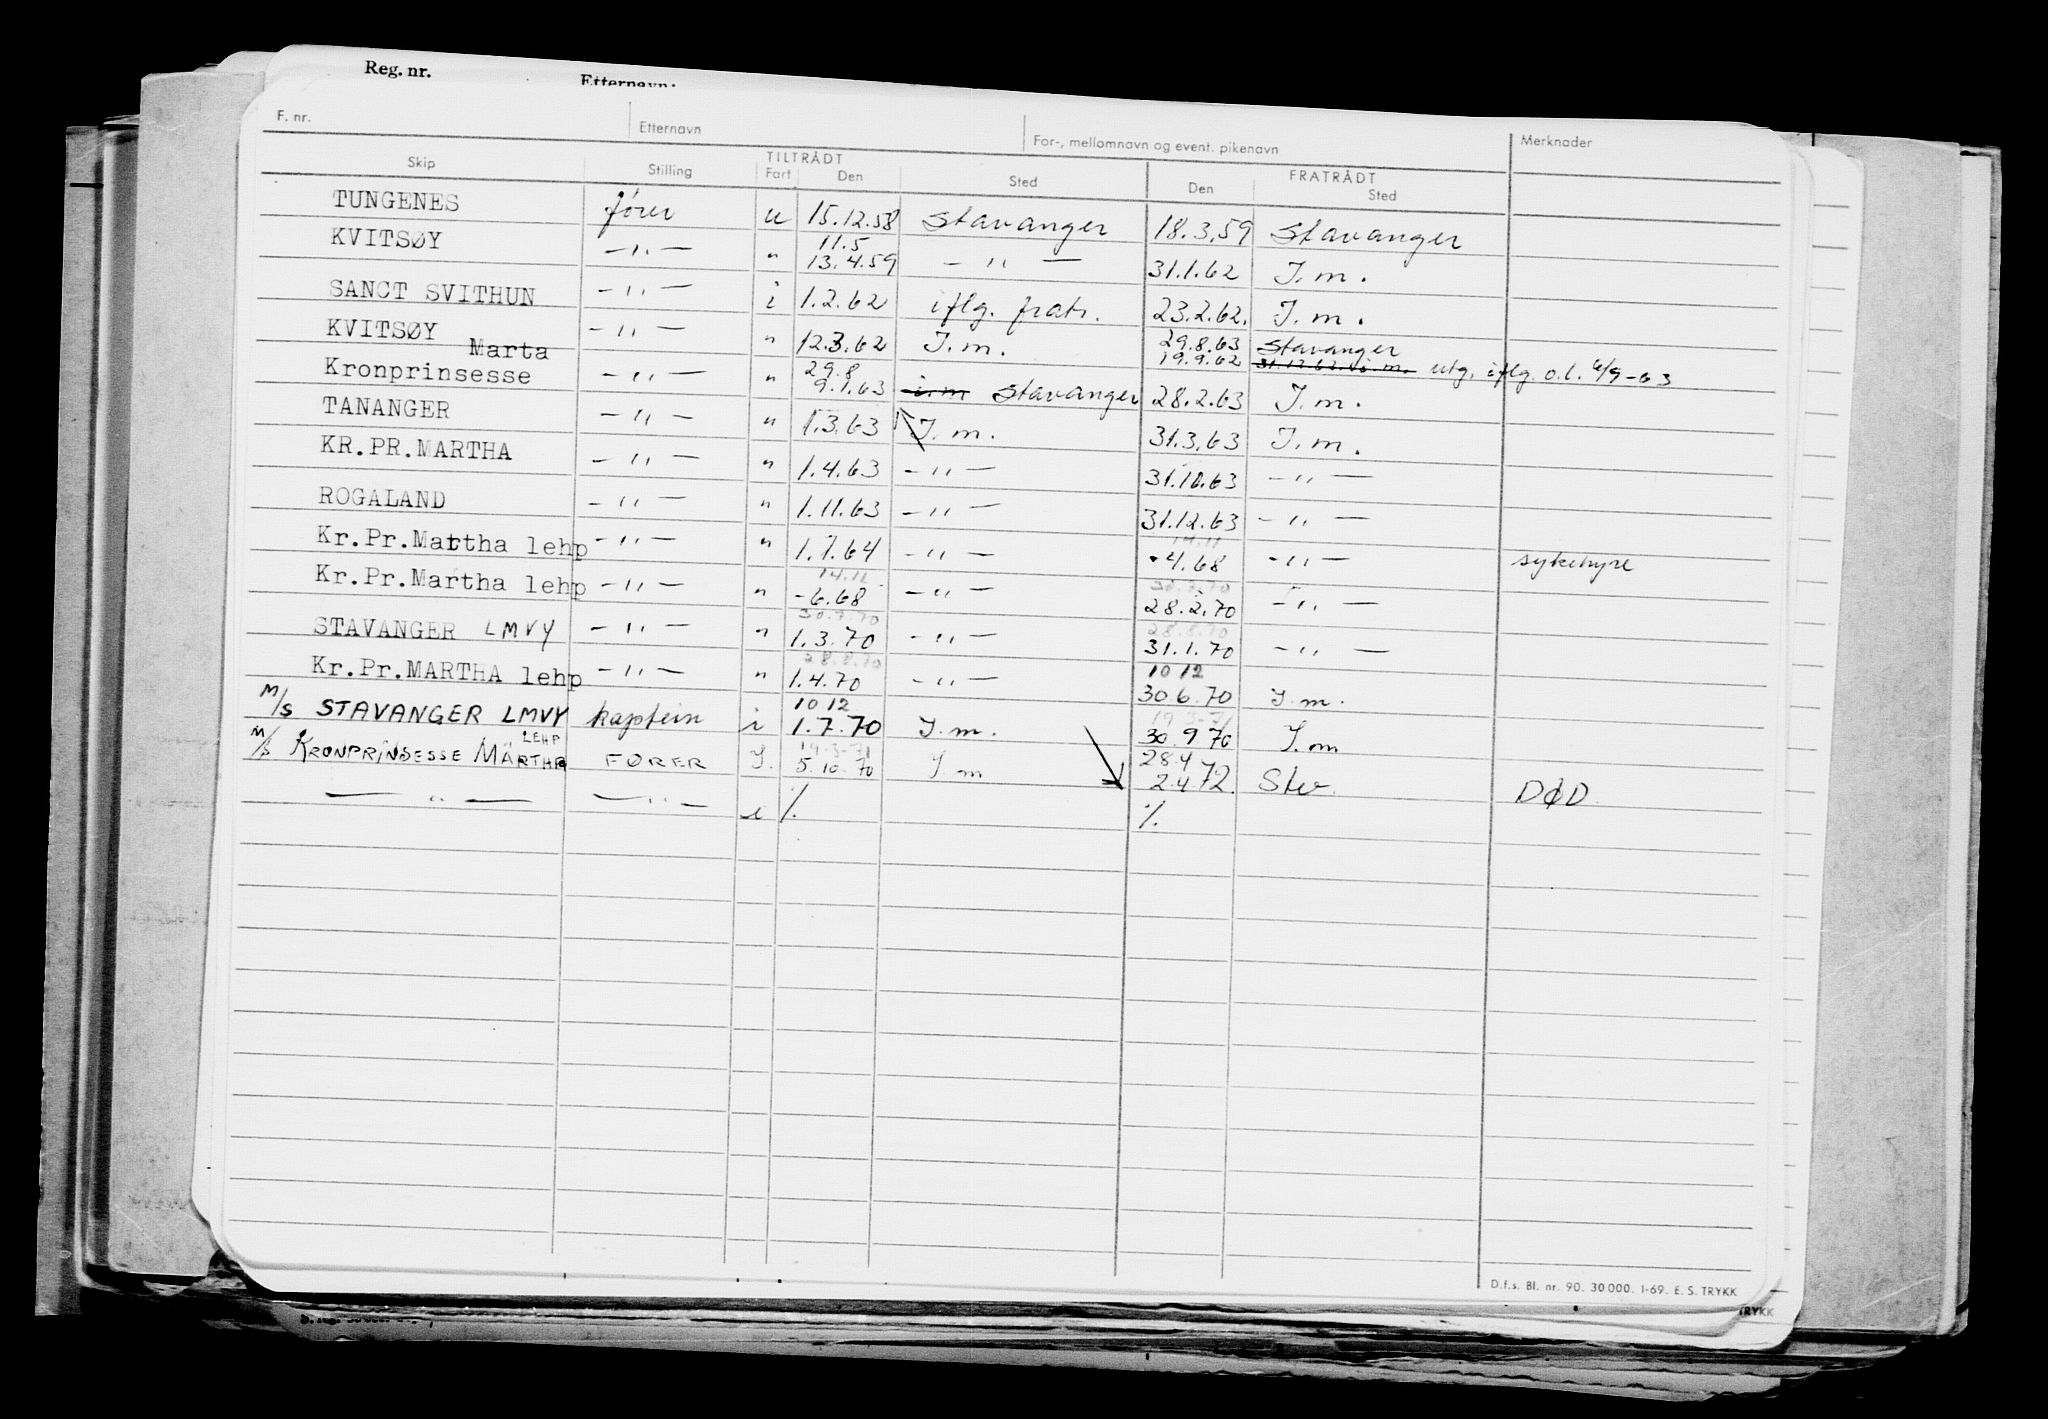 Reg. nr. Etternavn:
F. nr. Etternavn For-, mellomnavn og event. pikenavn Merknader
TILTRÅDT FRATRÅDT
Skip Stilling Fart Den Sted Den Sted
TUNGENES fører u 15.12.58 Stavanger 18.3.59 Stavanger
11.5
KVITSØY -"- " 13.4.59 -"- 31.1.62 I.m.
SANCT SVITHUN -"- i 1.2.62 iflg. fratr. 23.2.62. I.m.
29.8.63 Stavanger
KVITSØY -"- " 12.3.62 I.m. 19.9.62 31.12.62 i.m. utg. iflg. o.l. 6/9-63
Marta 29.8
Kronprinsesse -"- " 9.1.63 i.m Stavanger 28.2.63 I.m.
TANANGER -"- " 1.3.63 I.m. 31.3.63 I.m.
KR.PR.MARTHA -"- " 1.4.63 -"- 31.10.63 -"-
ROGALAND -"- " 1.11.63 -"- 31.12.63 -"-
14.11
Kr.Pr.Martha lehp -"- " 1.1.64 -"- -4.68 -"- sykehyre
14.11 30.7.70
Kr.Pr.Martha lehp -"- " -6.68 -"- 28.2.70 -"-
30.7.70 28.8.70
STAVANGER LMVY -"- " 1.3.70 -"- 31.1.70 -"-
28.8.70 10 12
Kr.Pr.MARTHA lehp -"- " 1.4.70 -"- 30.6.70 I.m.
10 12 19.3-71
M/S STAVANGER LMVY kaptein i 1.7.70 I.m. 30.9 70 I.m
LEHP 19.3-71 28.4
M/S KRONPRINSESSE MÄRTHA FØRER I. 5.10.70 I m 2.4.72. Stv. DØD
-"- -"- i % %
D.f.s. Bl. nr. 90. 30 000. 1-69. E. S. TRYKK
TRYKK